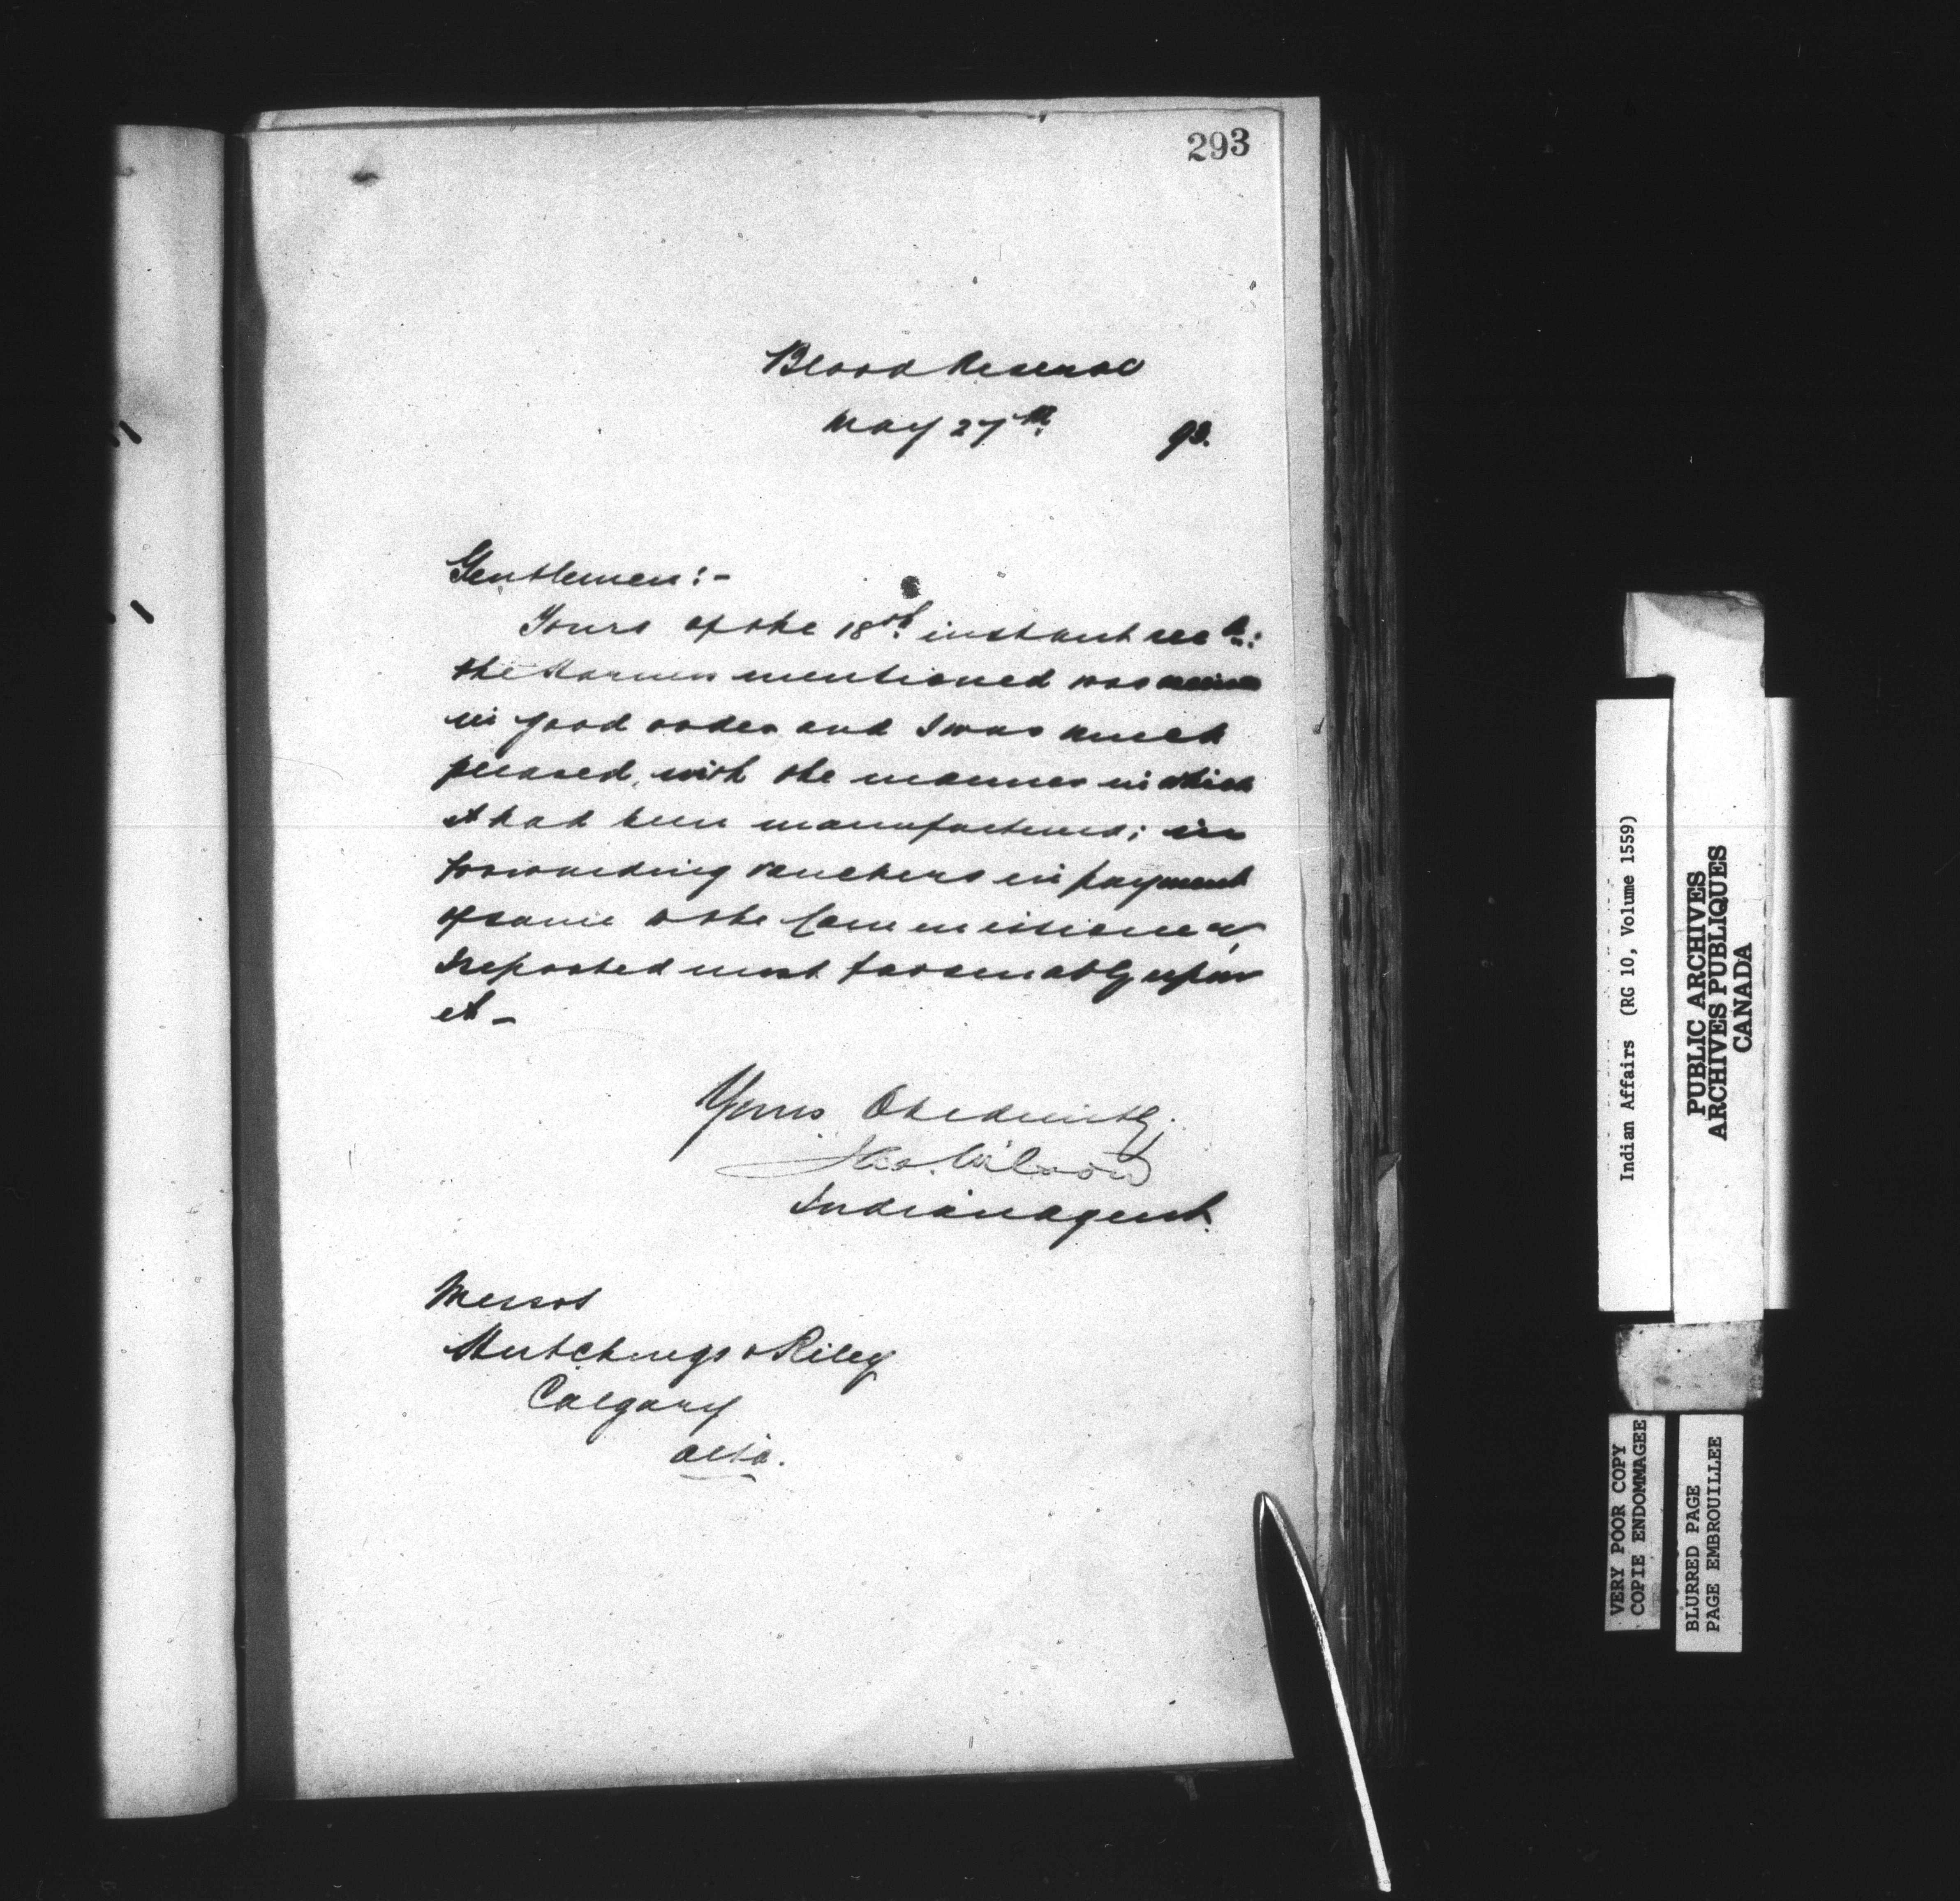 293
Blood Reserve
May 27th 93.
Gentlemen:-
Yours of the 18th instant recd:
the Harness mentioned was
in good order and I was much
pleased, with the manner in which
it had been manufactured; in
forwarding vouchers in payment
of same to the Commissioner,
I reported most favourably upon
it-
Yours Obediently,
Jas. Wilson
Indian Agent.
Messrs
Hutchings & Riley
Calgary
Alta.
Indian Affairs (RG 10, Volume 1559)
PUBLIC ARCHIVES
ARCHIVES PUBLIQUES
CANADA
VERY POOR COPY
COPIE ENDOMMAGEE
BLURRED PAGE
PAGE EMBROUILLEE